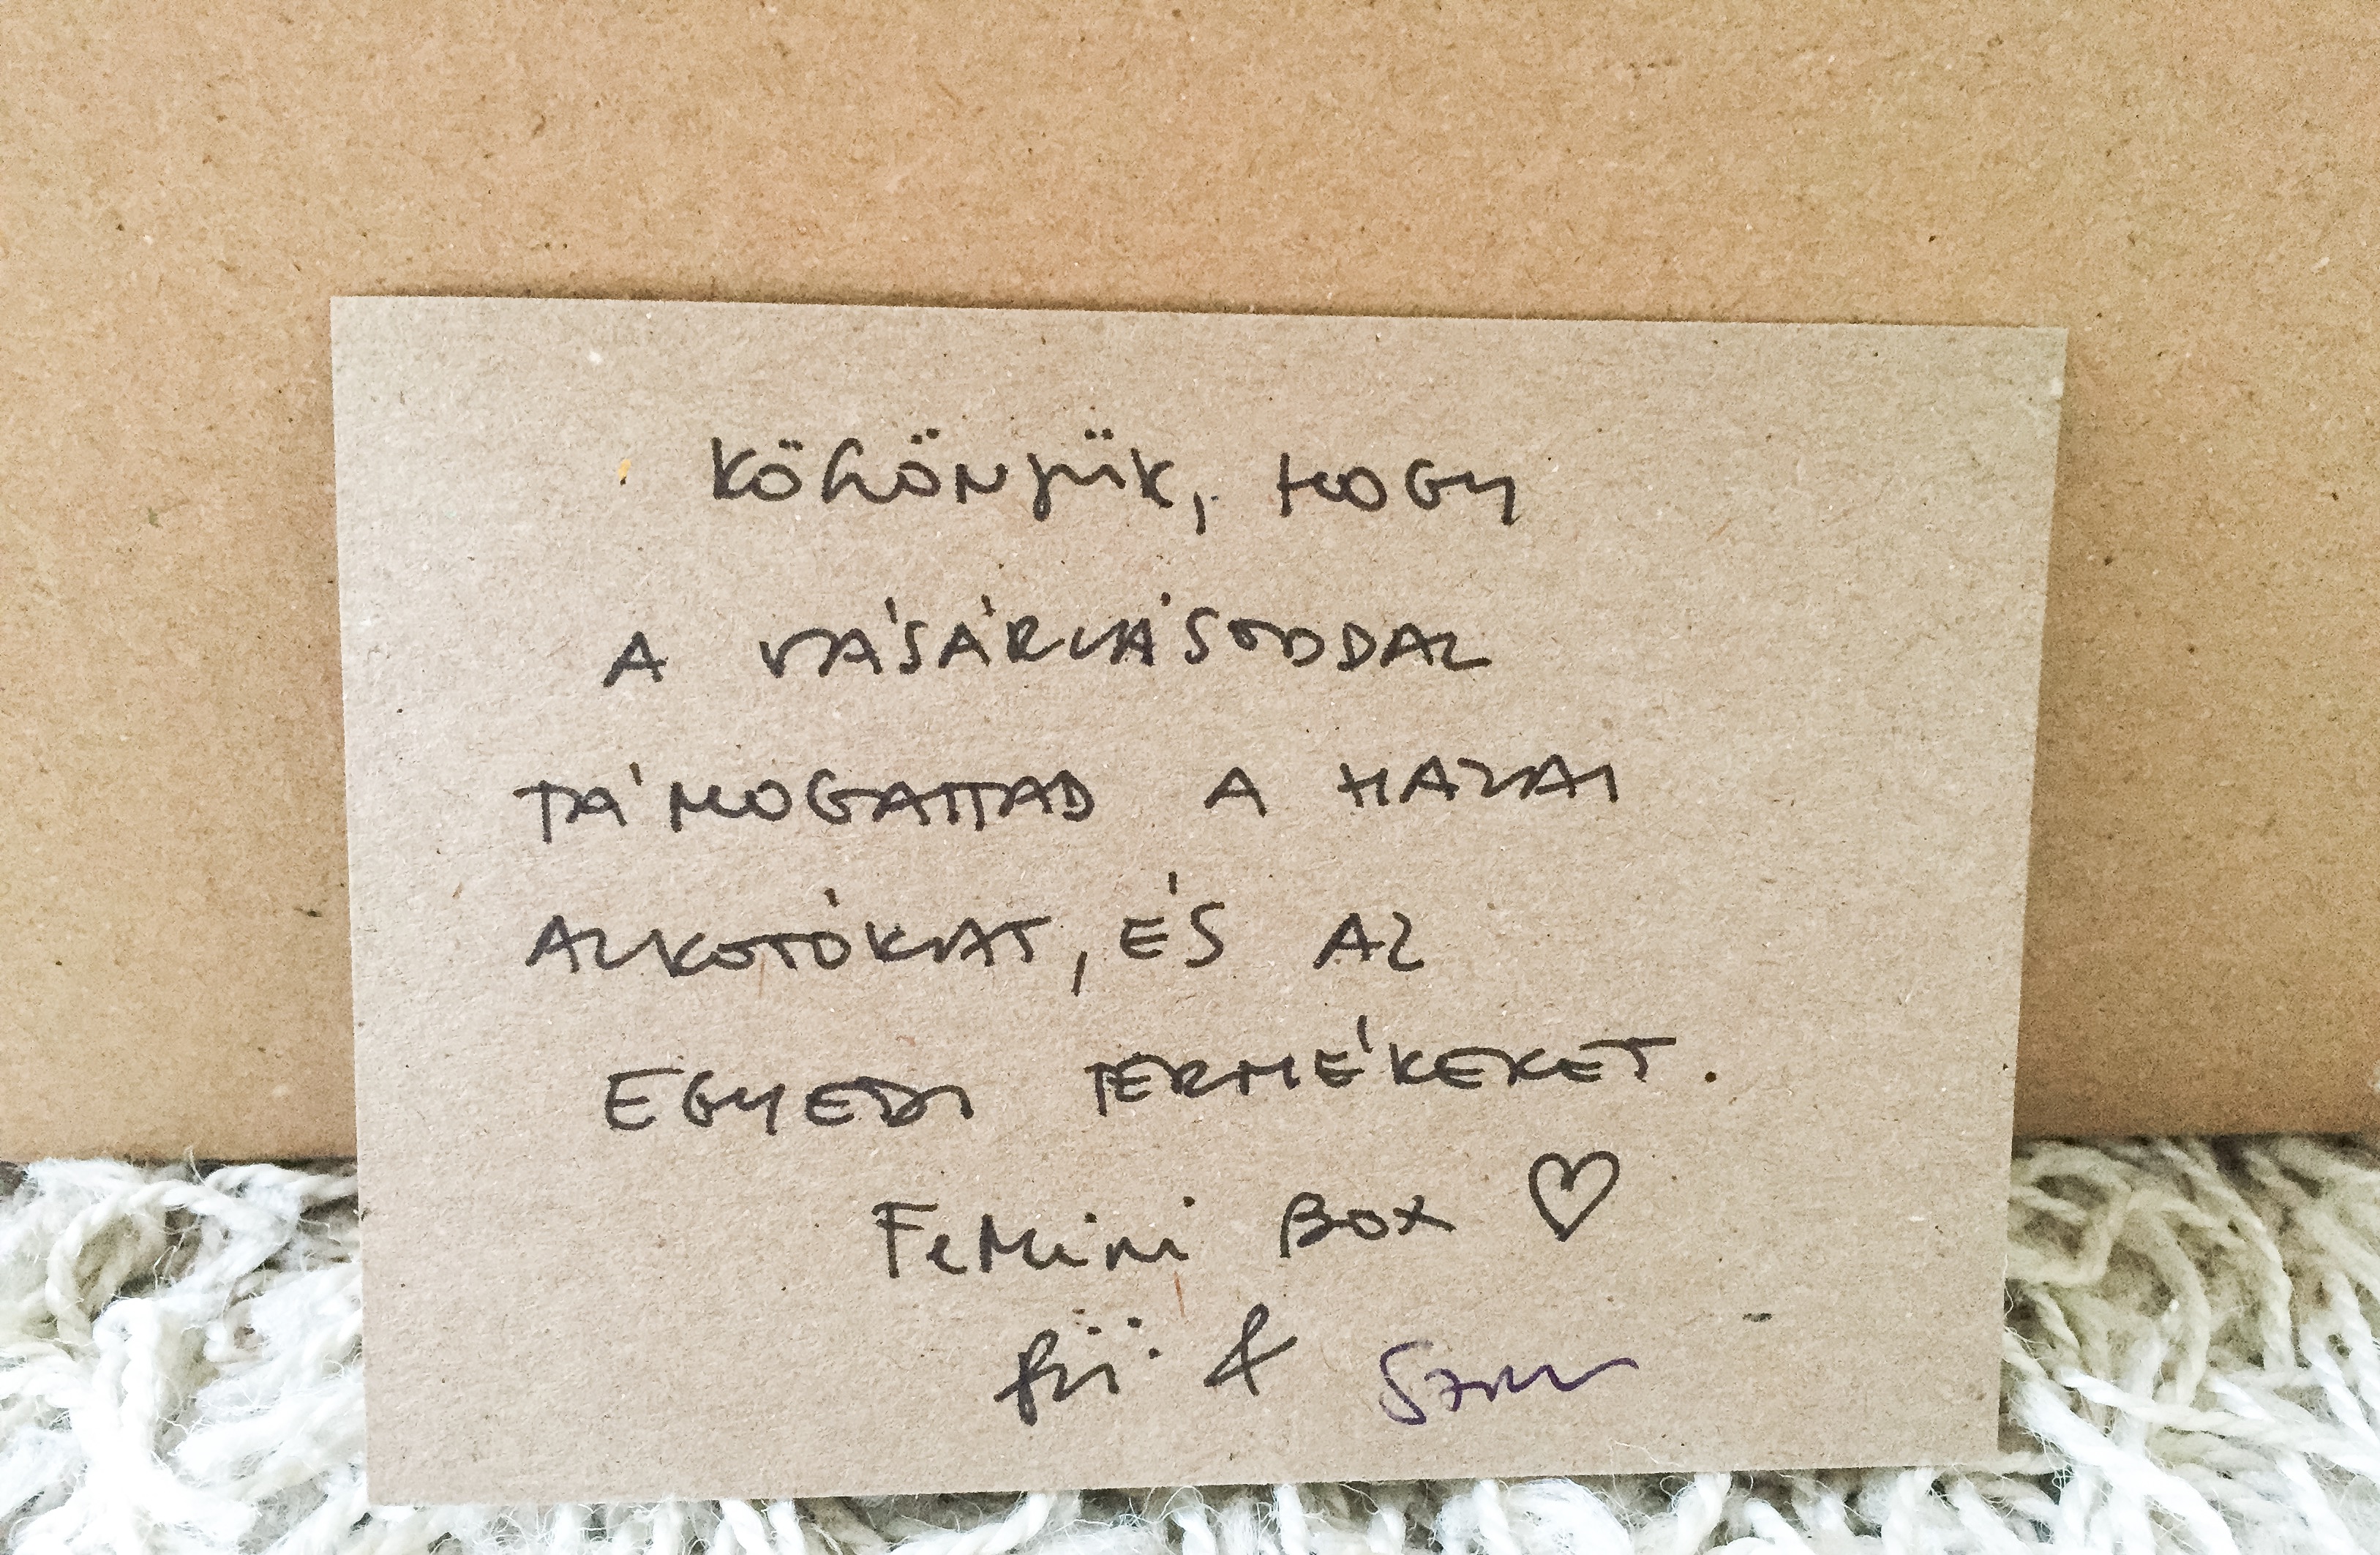 KÖSZÖNJÜK, HOGY
A VÁSÁRLÁSODDAL
TÁMOGATTAD A HAZAI
ALKOTÓKAT, ÉS AZ
EGYEDI TERMÉKEKET.
FeMini Box ♡
&